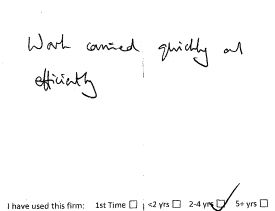 Work carried quickly and
efficiently
I have used this firm: 1st Time ☐ <2 yrs ☐ 2-4 yrs ☑ 5+ yrs ☐